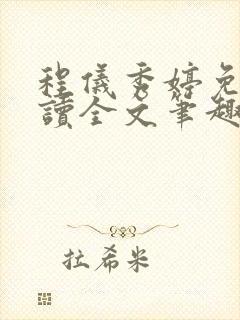 程儀秀婷免
讀全文筆趣
拉希米